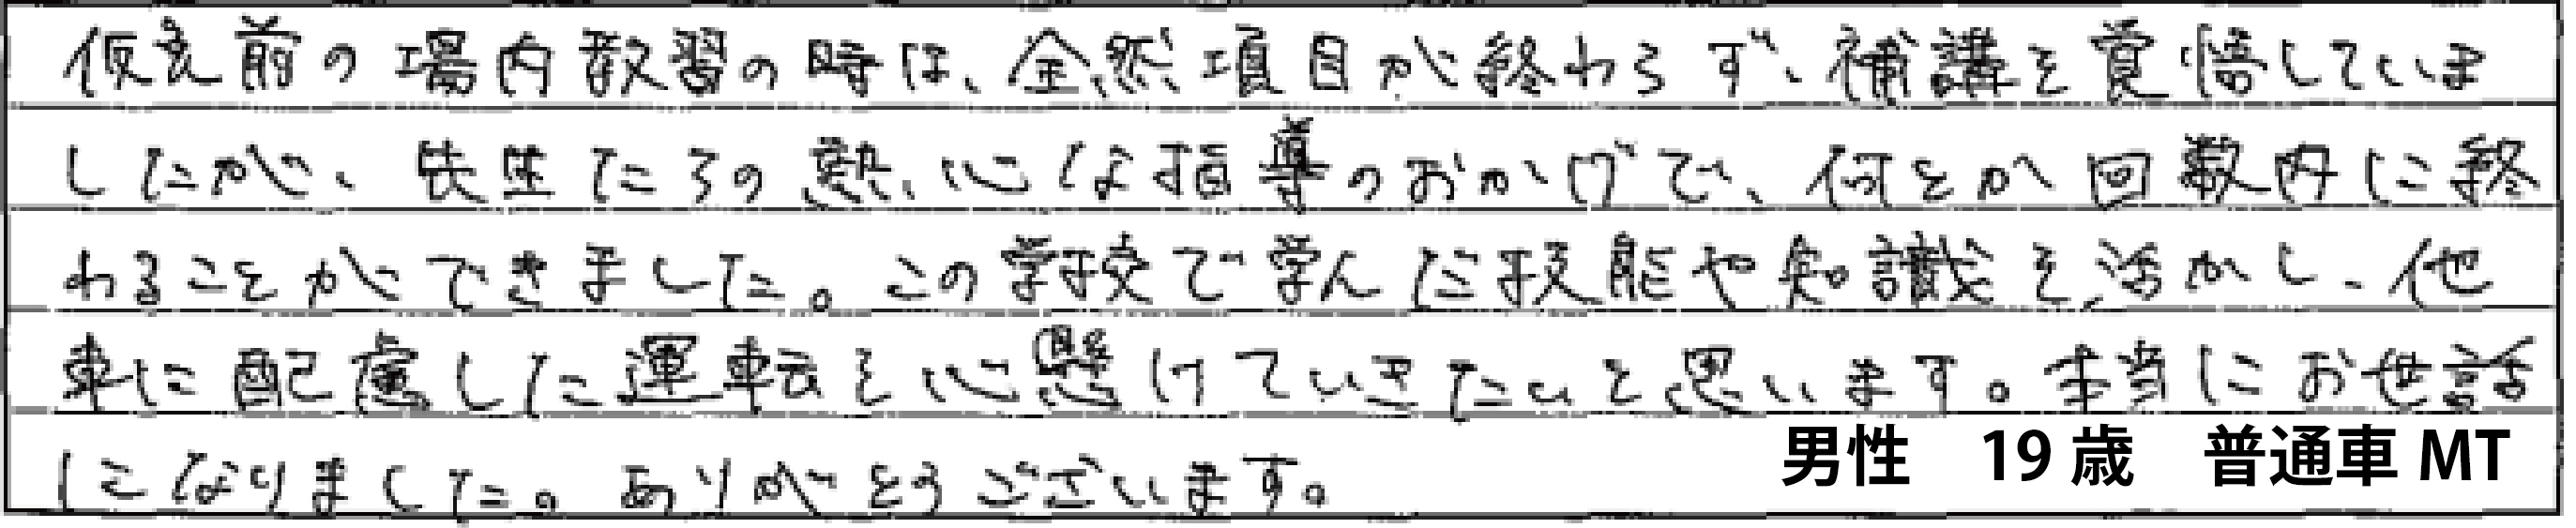 仮免前の場内教習の時は、全然項目が終わらず、補講を覚悟していま
したが、先生たちの熱心な指導のおかげで、何とか回数内に終
わることができました。この学校で学んだ技能や知識を活かし、他
車に配慮した運転を心懸けていきたいと思います。本当にお世話
になりました。ありがとうございます。
男性　19歳　普通車MT